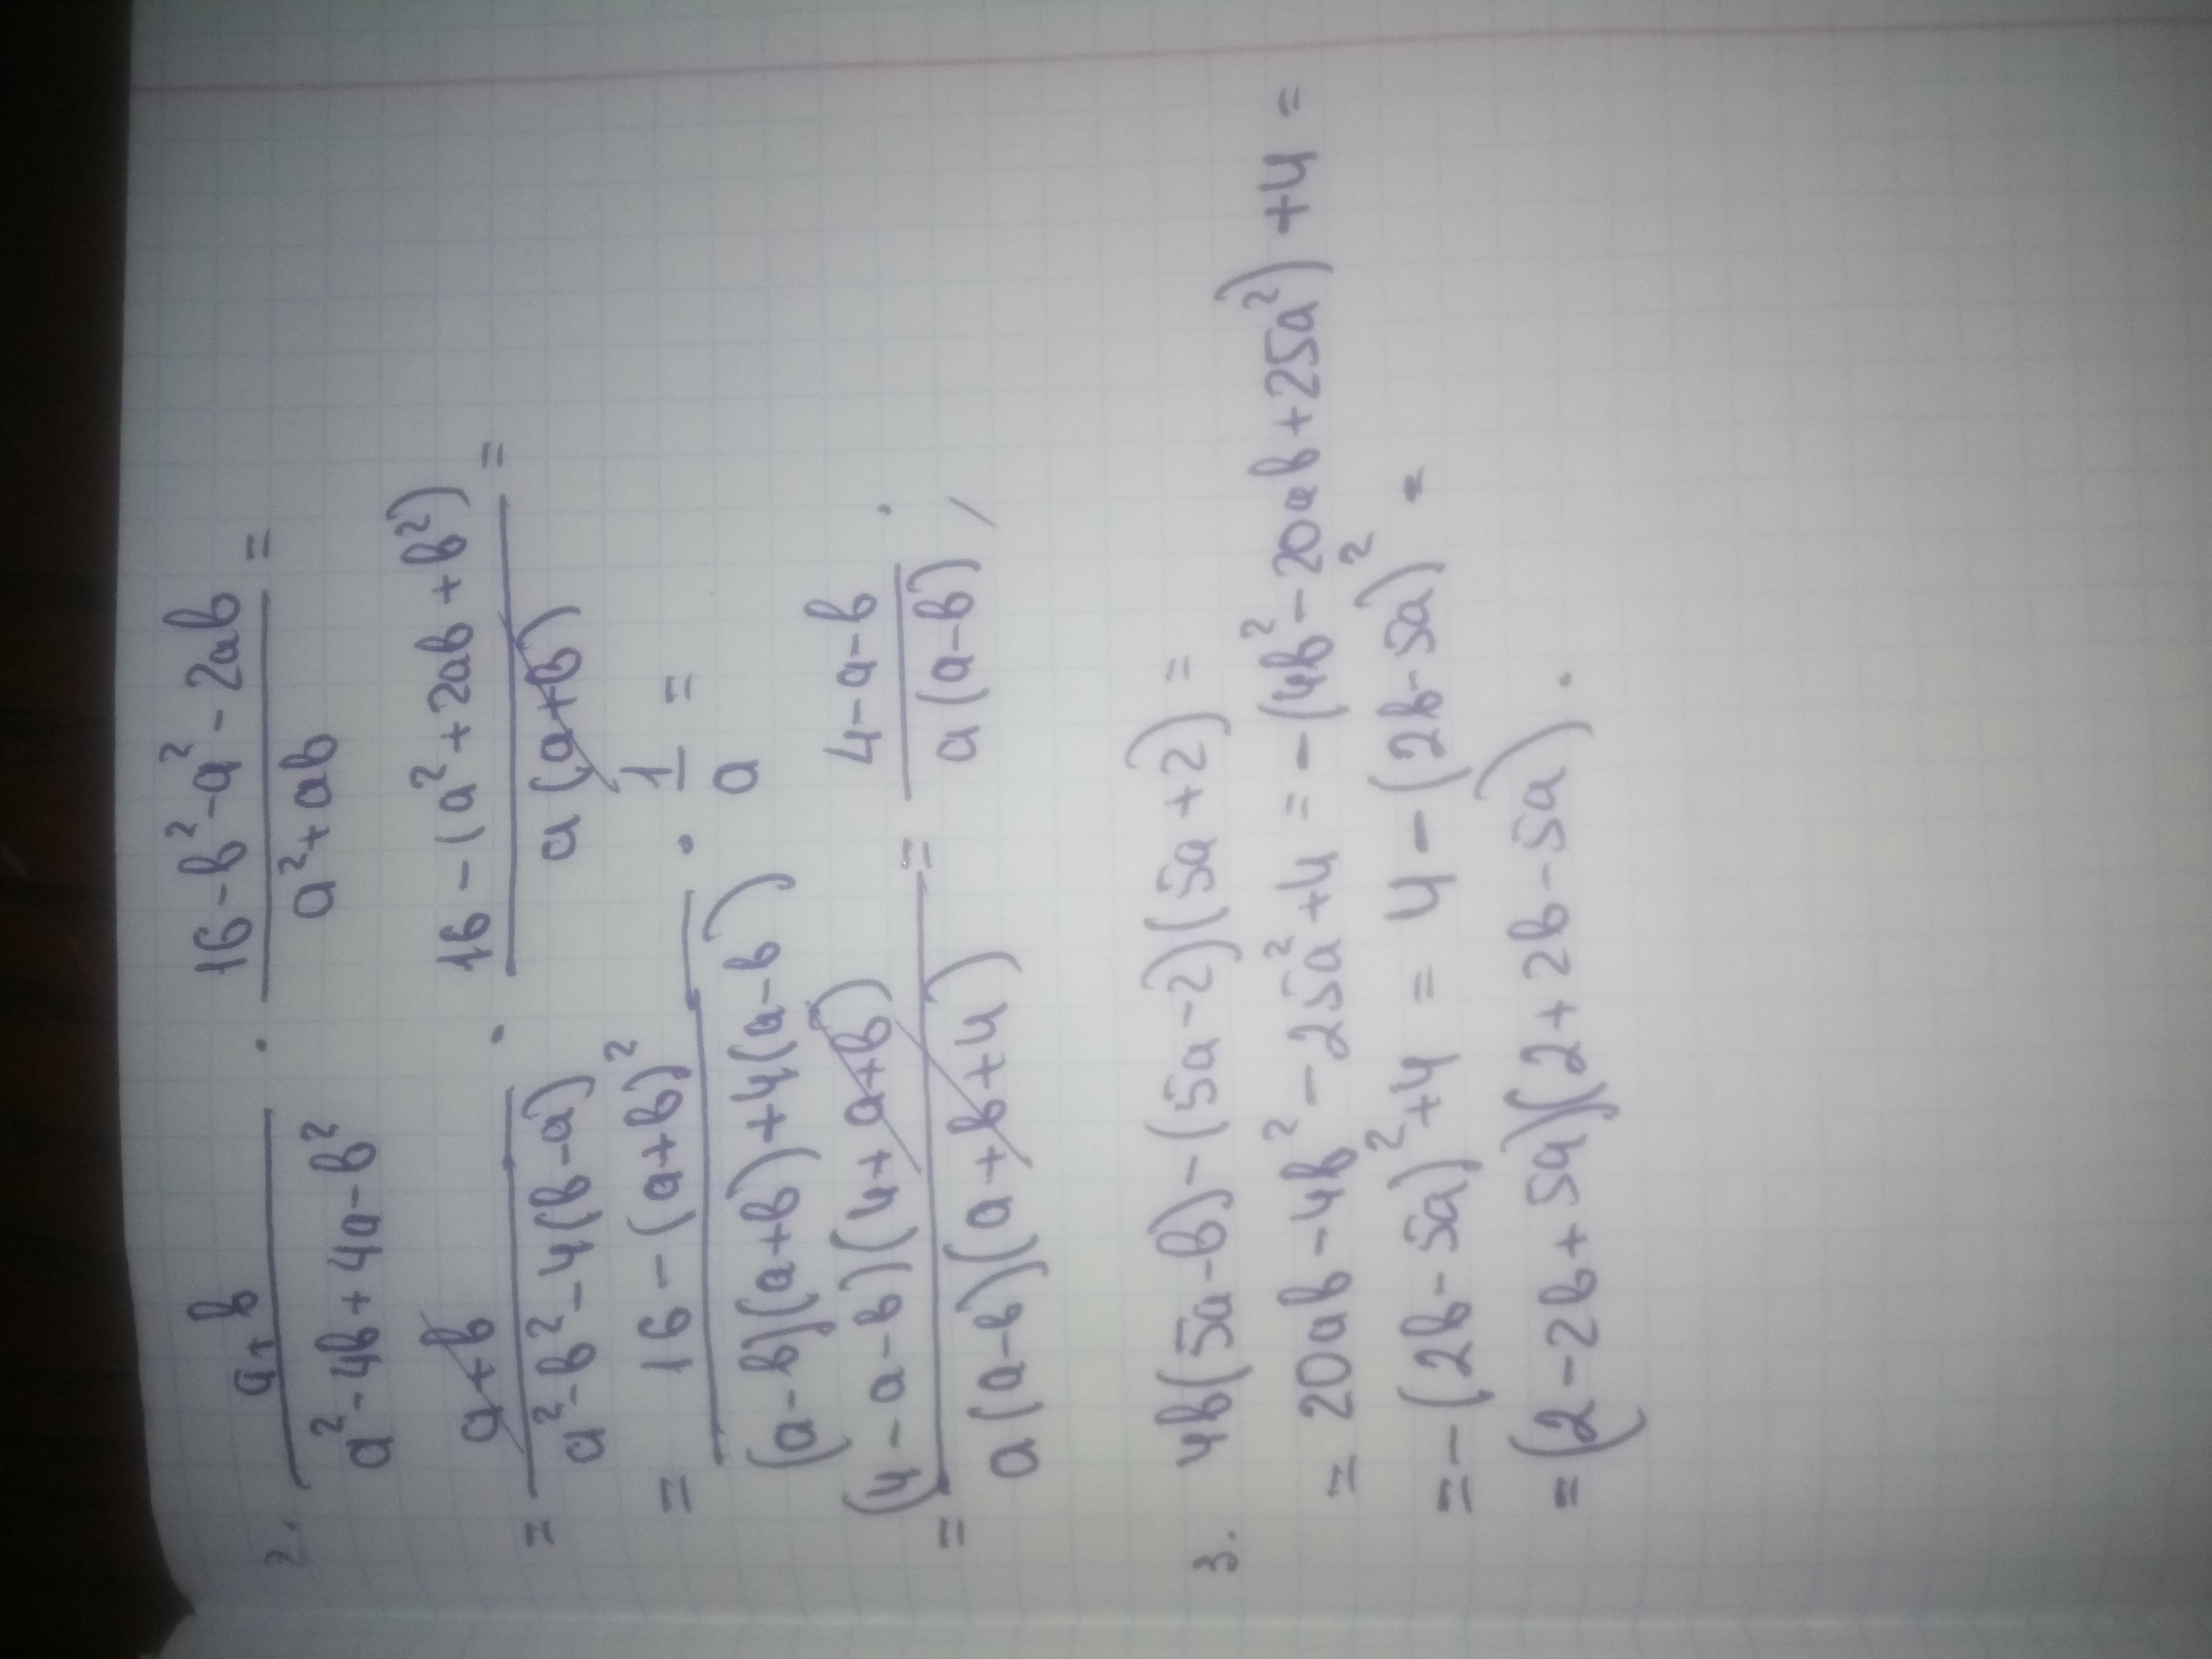 2. (a+b)/(a²-4b+4a-b²) · (16-b²-a²-2ab)/(a²+ab) =
= (a+b)/(a²-b²-4(b-a)) · (16-(a²+2ab+b²))/(a(a+b)) =
= (16-(a+b)²)/((a-b)(a+b)+4(a-b)) · 1/a =
= ((4-a-b)(4+a+b))/(a(a-b)(a+b+4)) = (4-a-b)/(a(a-b)).
3. 4b(5a-b)-(5a-2)(5a+2) =
= 20ab-4b²-25a²+4 = -(4b²-20ab+25a²)+4 =
= -(2b-5a)²+4 = 4-(2b-5a)² =
= (2-2b+5a)(2+2b-5a).